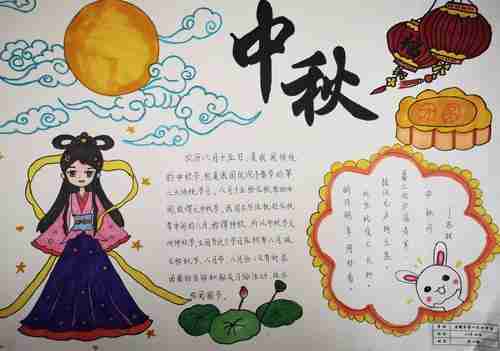 中秋
团圆
农历八月十五日,是我国传统
的中秋节,也是我国仅次于春节的第
二大传统节日。八月十五恰在秋季的中
间,故谓之中秋节。我国古历法把处在秋
季中间的八月,称谓仲秋,所以中秋节又
叫仲秋节。
八月节、八月会;又有祈求
团圆的信仰和相关习俗活动,故亦
称团圆节。
中秋月
——苏轼
暮云收尽溢清寒,
银汉无声转玉盘。
此生此夜不长好,
明月明年何处看。